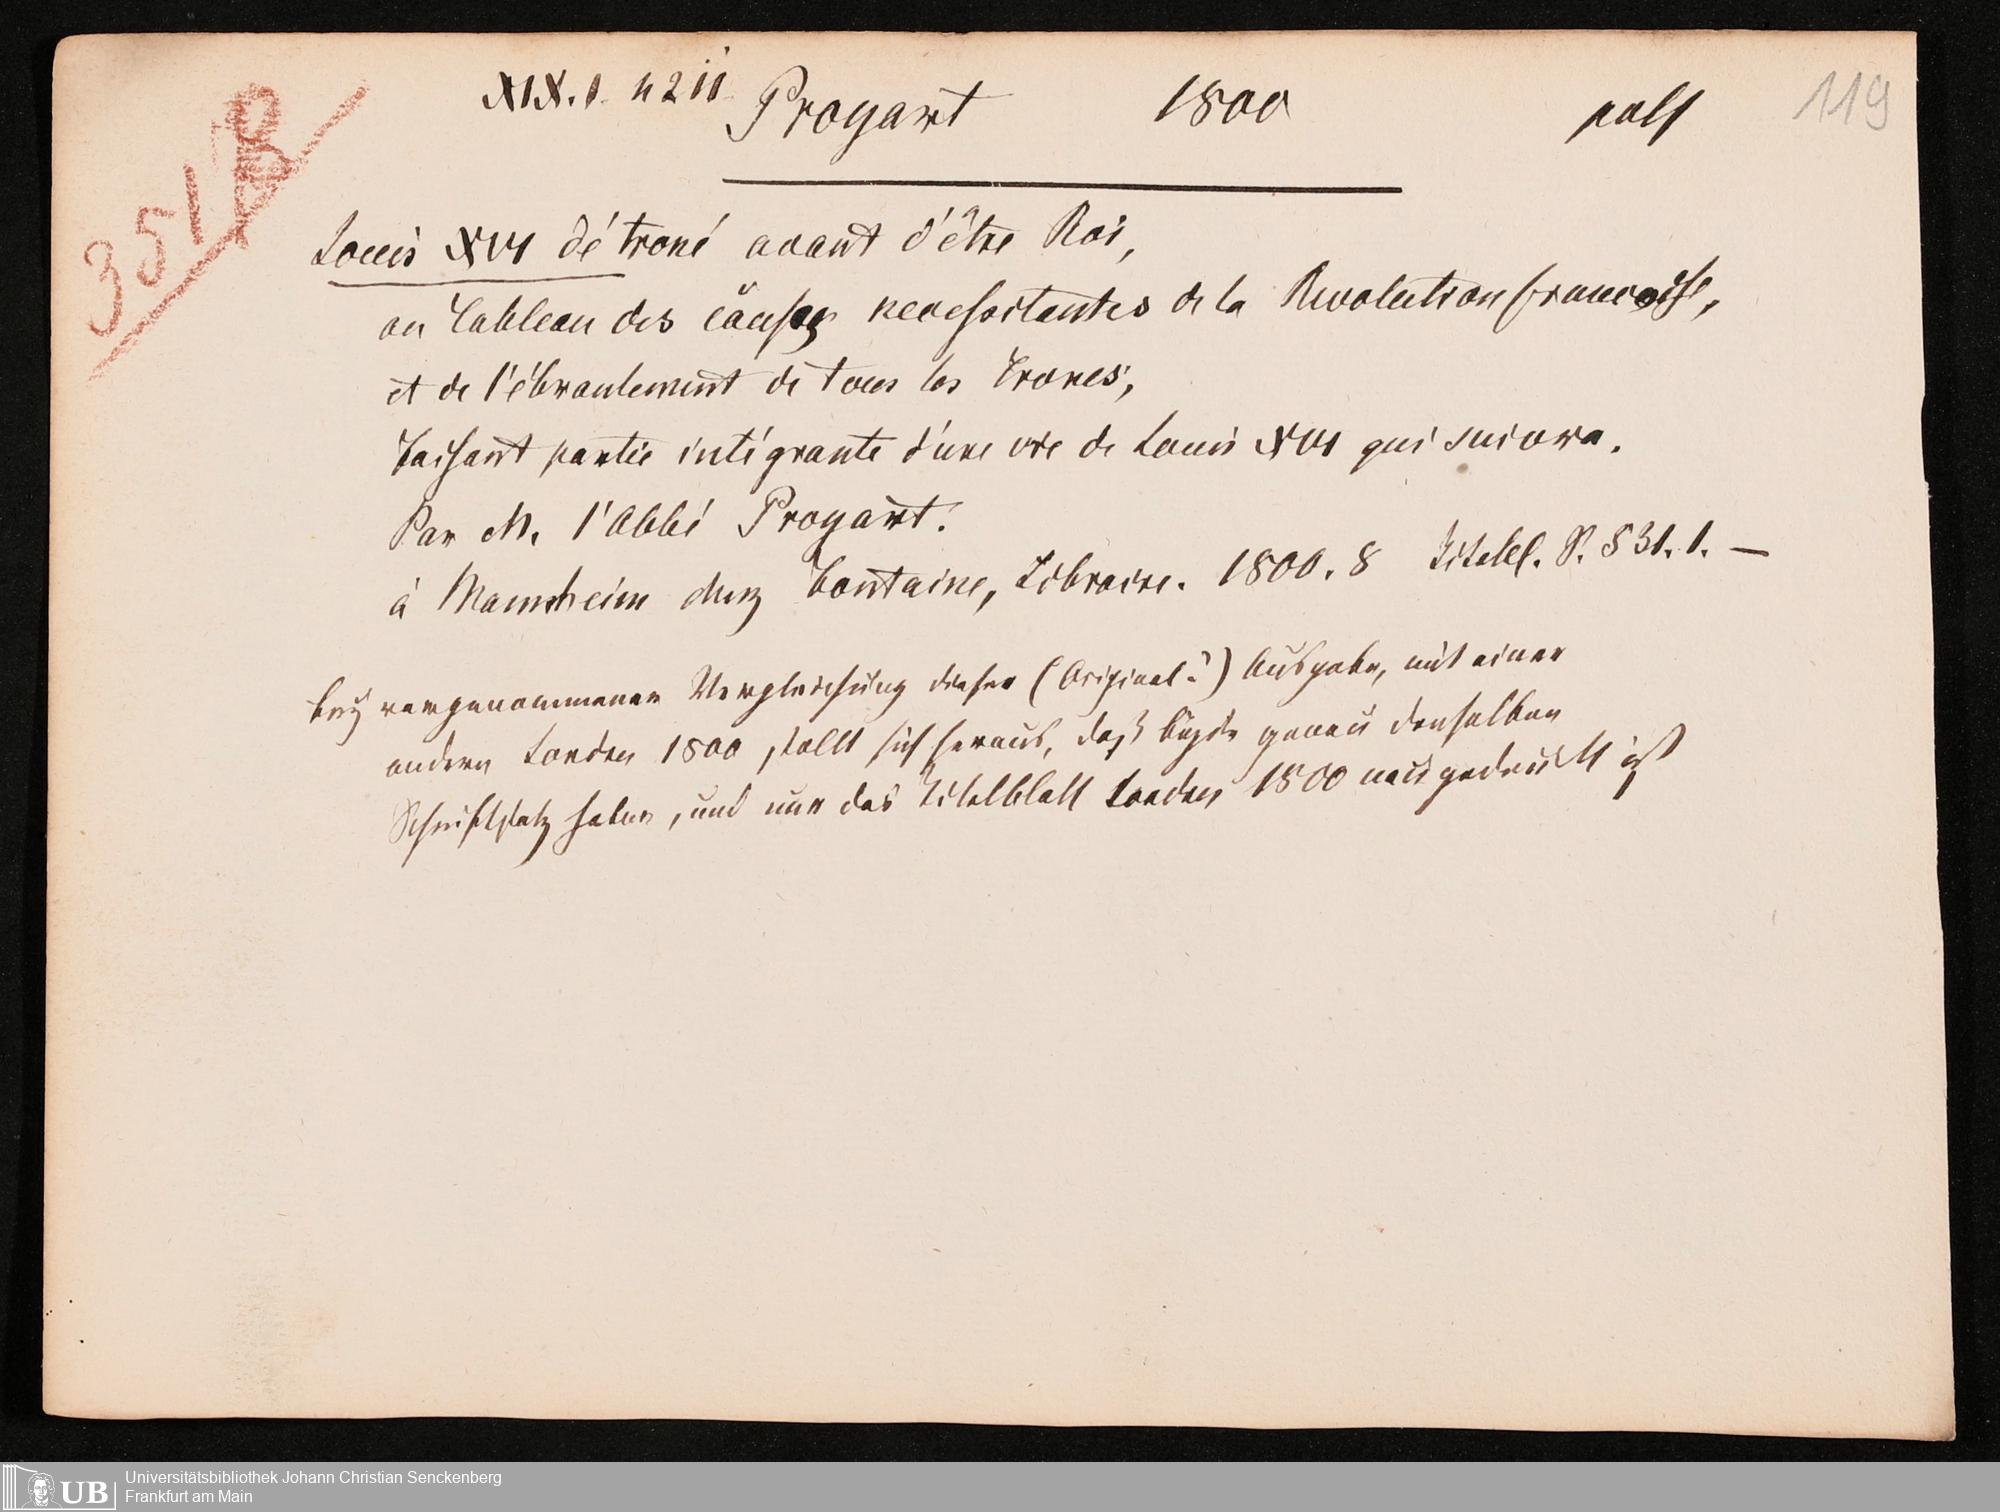 119
XIX. 1. n 211 Proyart 1800
351
Louis XVI détroné avant d'être Roi,
ou Tableau des causes necessitantes de la Revolution françoise,
et de l'ébranlement de tous les Trones;
Faisant partie intégrante d'une vie de Louis XVI qui suivra.
Par M. l'Abbé Proyart.
à Mannheim chez Fontaine, Libraire. 1800. 8 Titelbl. S. 531. 1. —
bey vorgenommener Vergleichung dieser (Original?) Ausgabe, mit einer
andern London 1800, stellt sich heraus, daß beyde genau denselben
Schriftsatz haben, und nur das Titelblatt London 1800 neu gedruckt ist
UB Universitätsbibliothek Johann Christian Senckenberg
Frankfurt am Main